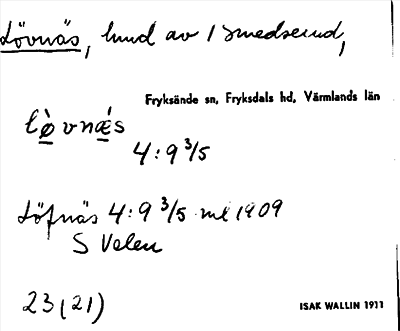 Lövnäs, hmd av 1 Smedserud,
Fryksände sn, Fryksdals hd, Värmlands län
lø̀vnæ̀s
4:9 3/5
Löfnäs 4:9 3/5 ml 1909
S Velen
23(21)
ISAK WALLIN 1911